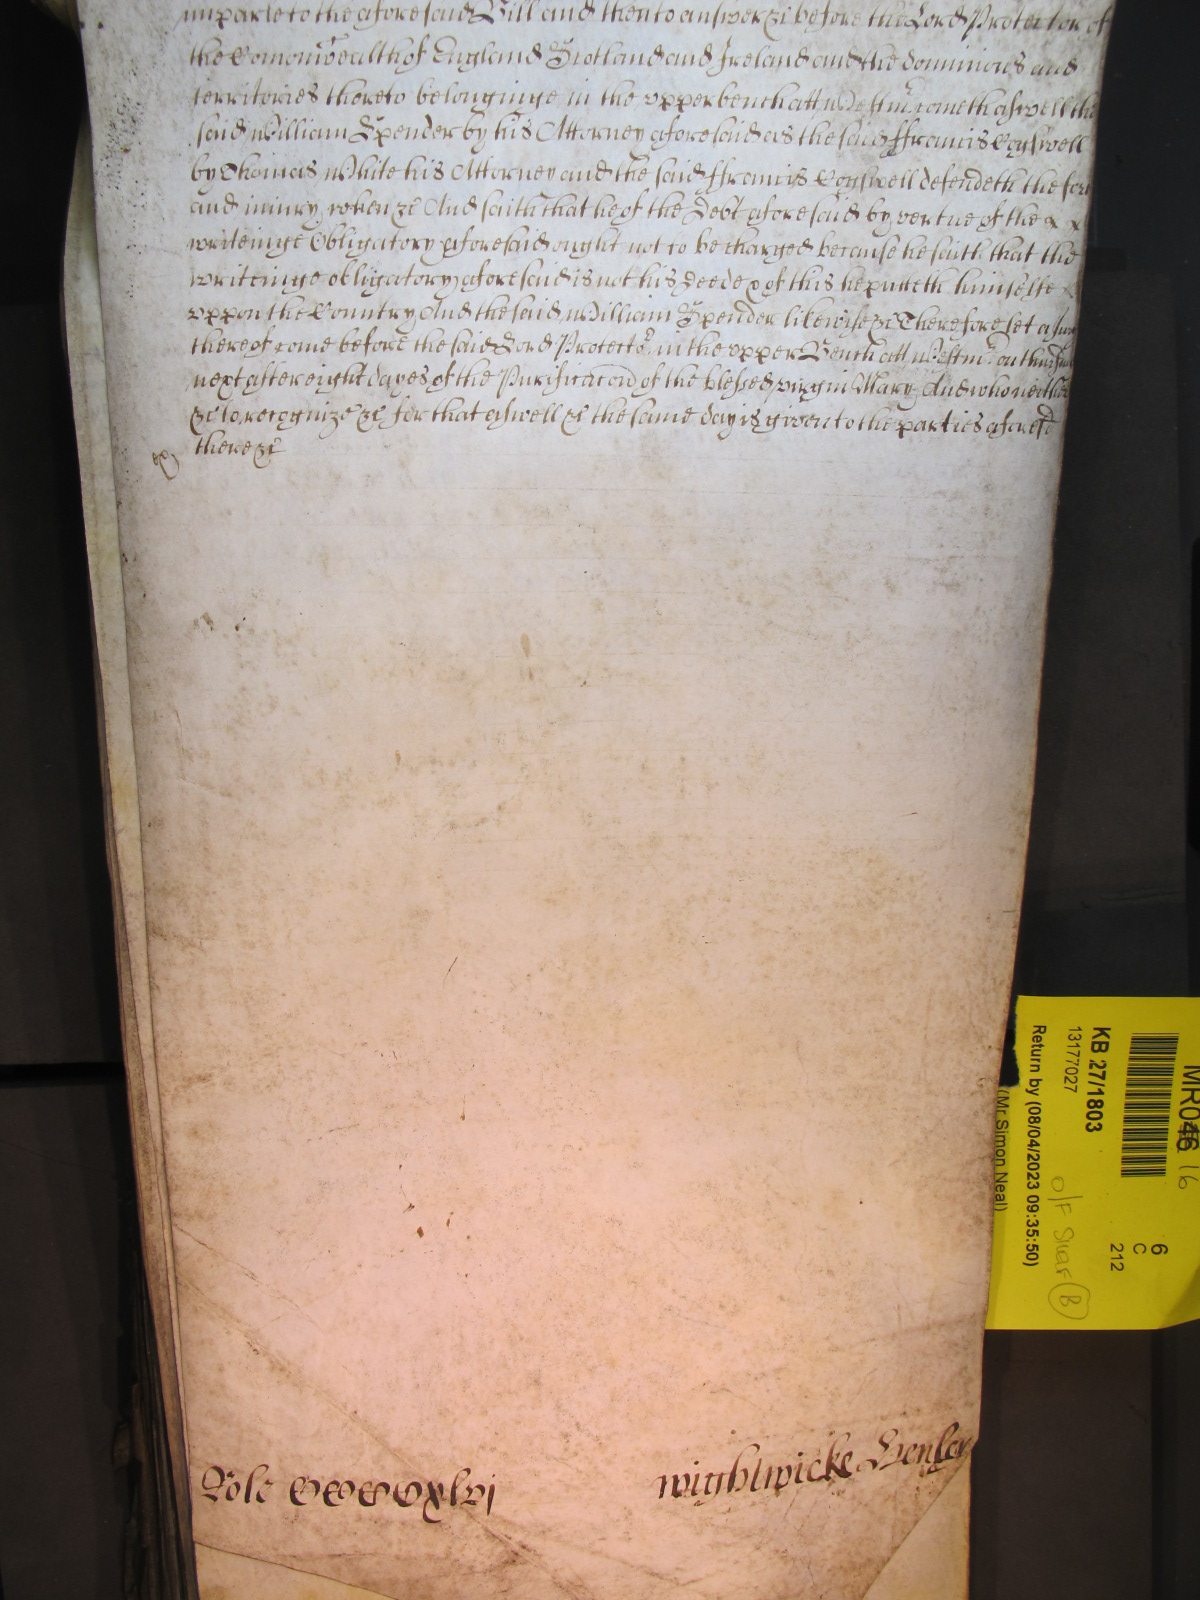 imparle to the aforesaid Bill and then to answer &c before the Lord Protector of
the Comonwealth of England Scotland and Ireland and the dominions and
territories thereto belonginge in the vpper bench att Westmr cometh aswell the
said William Spender by his Attorney aforesaid as the said ffrancis Cogswell
by Thomas White his Attorney and the said ffrancis Cogswell defendeth the for
and iniury when &c And saith that he of the Debt aforesaid by vertue of the
writeinge Obligatory aforesaid ought not to be charged because he saith that the
writtinge obligatory aforesaid is not his deede & of this he putteth himselfe
vppon the Country And the said William Spender likewise &c Therefore let a Jury
thereof come before the said Lord Protector in the vpper Bench att Westmr on thursday
next after eight dayes of the Purificacon of the blessed virgin Mary And who neither
&c to recognize &c for that aswell &c the same day is given to the parties aforesd
there &c
Role CCCCxlvj
wightwicke Henley
MR046 16
KB 27/1803
13177027
Return by (08/04/2023 09:35:50)
(Mr Simon Neal)
6
C
212
O/F Star B